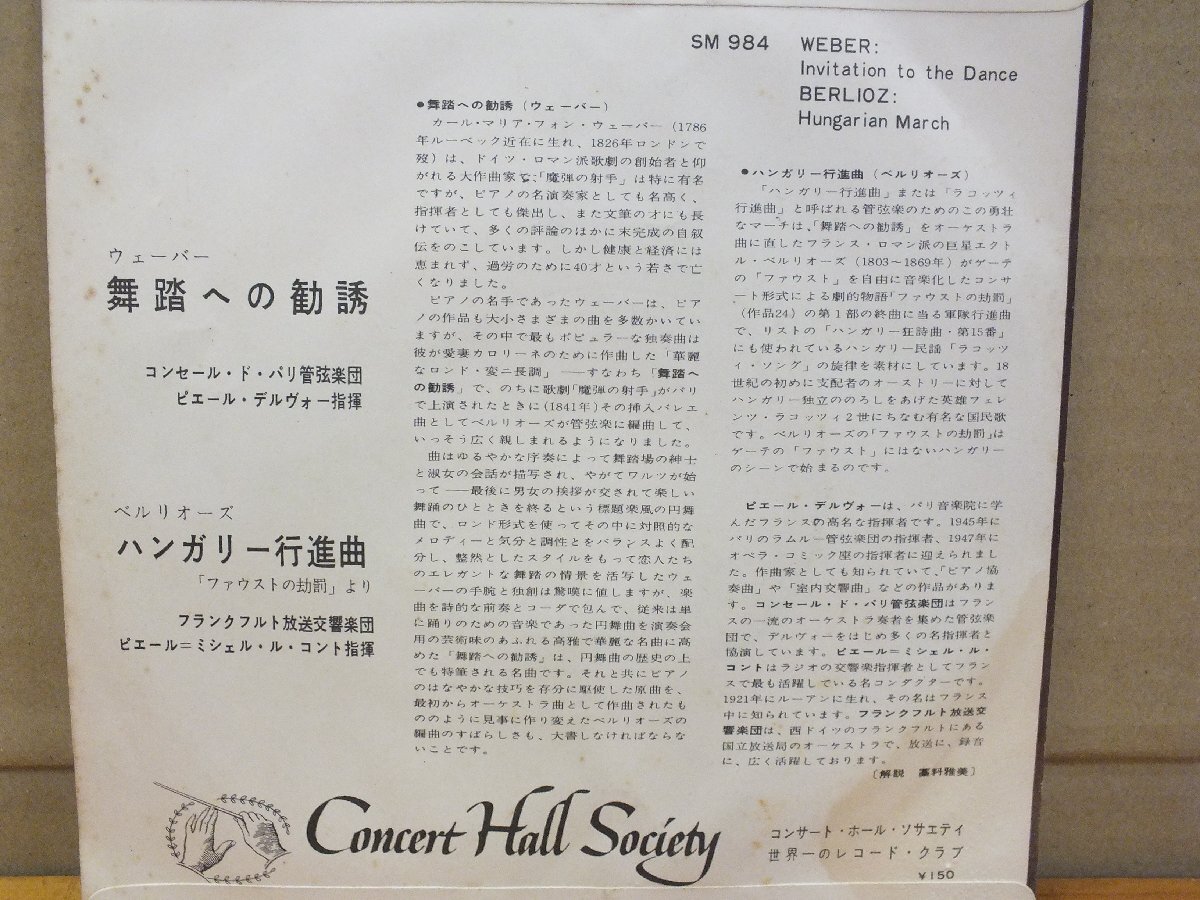 SM 984
WEBER:
Invitation to the Dance
BERLIOZ:
Hungarian March
ウェーバー
舞踏への勧誘
コンセール・ド・パリ管弦楽団
ピエール・デルヴォー指揮
ベルリオーズ
ハンガリー行進曲
「ファウストの劫罰」より
フランクフルト放送交響楽団
ピエール=ミシェル・ル・コント指揮
●舞踏への勧誘(ウェーバー)
カール・マリア・フォン・ウェーバー(1786
年ルーベック近在に生れ、1826年ロンドンで
歿)は、ドイツ・ロマン派歌劇の創始者と仰
がれる大作曲家で、「魔弾の射手」は特に有名
ですが、ピアノの名演奏家としても名高く、
指揮者としても傑出し、また文筆の才にも長
けていて、多くの評論のほかに末完成の自叙
伝をのこしています。しかし健康と経済には
恵まれず、過労のために40才という若さで亡
くなりました。
ピアノの名手であったウェーバーは、ピア
ノの作品も大小さまざまの曲を多数かいてい
ますが、その中で最もポピュラーな独奏曲は
彼が愛妻カロリーネのために作曲した「華麗
なロンド・変ニ長調」——すなわち「舞踏へ
の勧誘」で、のちに歌劇「魔弾の射手」がパリ
で上演されたときに(1841年)その挿入バレエ
曲としてベルリオーズが管弦楽に編曲して、
いっそう広く親しまれるようになりました。
曲はゆるやかな序奏によって舞踏場の紳士
と淑女の会話が描写され、やがてワルツが始
って——最後に男女の挨拶が交されて楽しい
舞踊のひとときを終るという標題楽風の円舞
曲で、ロンド形式を使ってその中に対照的な
メロディーと気分と調性とをバランスよく配
分し、整然としたスタイルをもって恋人たち
のエレガントな舞踏の情景を活写したウェ
ーバーの手腕と独創は驚嘆に値しますが、楽
曲を詩的な前奏とコーダで包んで、従来は単
に踊りのための音楽であった円舞曲を演奏会
用の芸術味のあふれる高雅で華麗な名曲に高
めた「舞踏への勧誘」は、円舞曲の歴史の上
でも特筆される名曲です。それと共にピアノ
のはなやかな技巧を存分に駆使した原曲を、
最初からオーケストラ曲として作曲されたも
ののように見事に作り変えたベルリオーズの
編曲のすばらしさも、大書しなければならな
いことです。
●ハンガリー行進曲(ベルリオーズ)
「ハンガリー行進曲」または「ラコッツィ
行進曲」と呼ばれる管弦楽のためのこの勇壮
なマーチは、「舞踏への勧誘」をオーケストラ
曲に直したフランス・ロマン派の巨星エクト
ル・ベルリオーズ(1803〜1869年)がゲーテ
の「ファウスト」を自由に音楽化したコンサ
ート形式による劇的物語「ファウストの劫罰」
(作品24)の第1部の終曲に当る軍隊行進曲
で、リストの「ハンガリー狂詩曲・第15番」
にも使われているハンガリー民謡「ラコッツ
ィ・ソング」の旋律を素材にしています。18
世紀の初めに支配者のオーストリーに対して
ハンガリー独立ののろしをあげた英雄フェレ
ンツ・ラコッツィ2世にちなむ有名な国民歌
です。ベルリオーズの「ファウストの劫罰」は
ゲーテの「ファウスト」にはないハンガリー
のシーンで始まるのです。
ピエール・デルヴォーは、パリ音楽院に学
んだフランスの高名な指揮者です。1945年に
パリのラムルー管弦楽団の指揮者、1947年に
オペラ・コミック座の指揮者に迎えられまし
た。作曲家としても知られていて、「ピアノ協
奏曲」や「室内交響曲」などの作品がありま
す。コンセール・ド・パリ管弦楽団はフラン
スの一流のオーケストラ奏者を集めた管弦楽
団で、デルヴォーをはじめ多くの名指揮者と
協演しています。ピエール=ミシェル・ル・
コントはラジオの交響楽指揮者としてフラン
スで最も活躍している名コンダクターです。
1921年にルーアンに生れ、その名はフランス
中に知られています。フランクフルト放送交
響楽団は、西ドイツのフランクフルトにある
国立放送局のオーケストラで、放送に、録音
に、広く活躍しております。
〔解説 藁科雅美〕
Concert Hall Society
コンサート・ホール・ソサエティ
世界一のレコード・クラブ
¥150